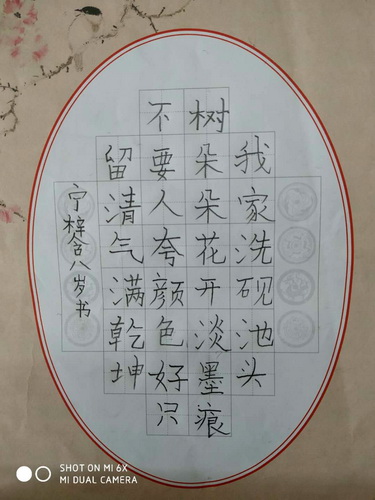 我家洗砚池头
树朵朵花开淡墨痕
不要人夸颜色好只
留清气满乾坤
宁梓含八岁书
SHOT ON MI 6X
MI DUAL CAMERA